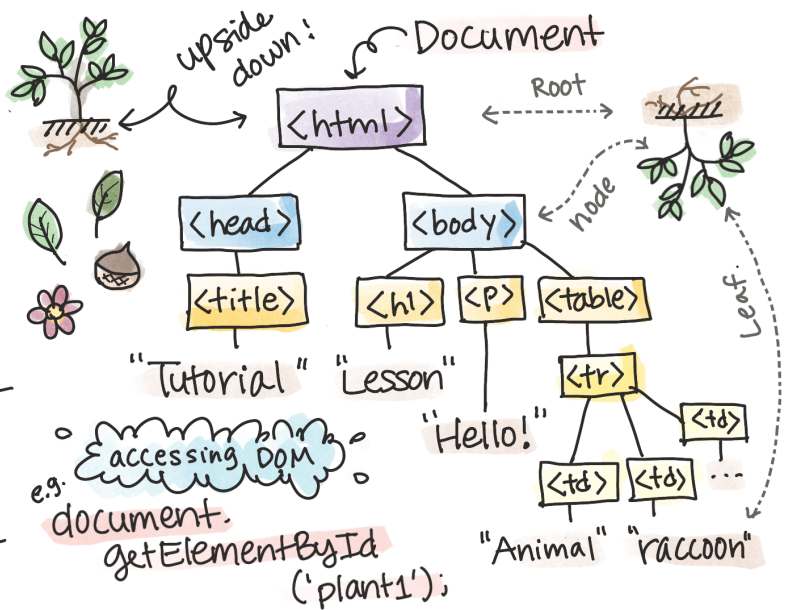 upside
down!
Document
Root
<html>
node
<head>
<body>
<title>
<h1>
<p>
<table>
Leaf.
"Tutorial"
"Lesson"
<tr>
"Hello!"
<td>
...
<td>
<td>
"Animal"
"raccoon"
accessing DOM
e.g.
document.
getElementById
('plant1');